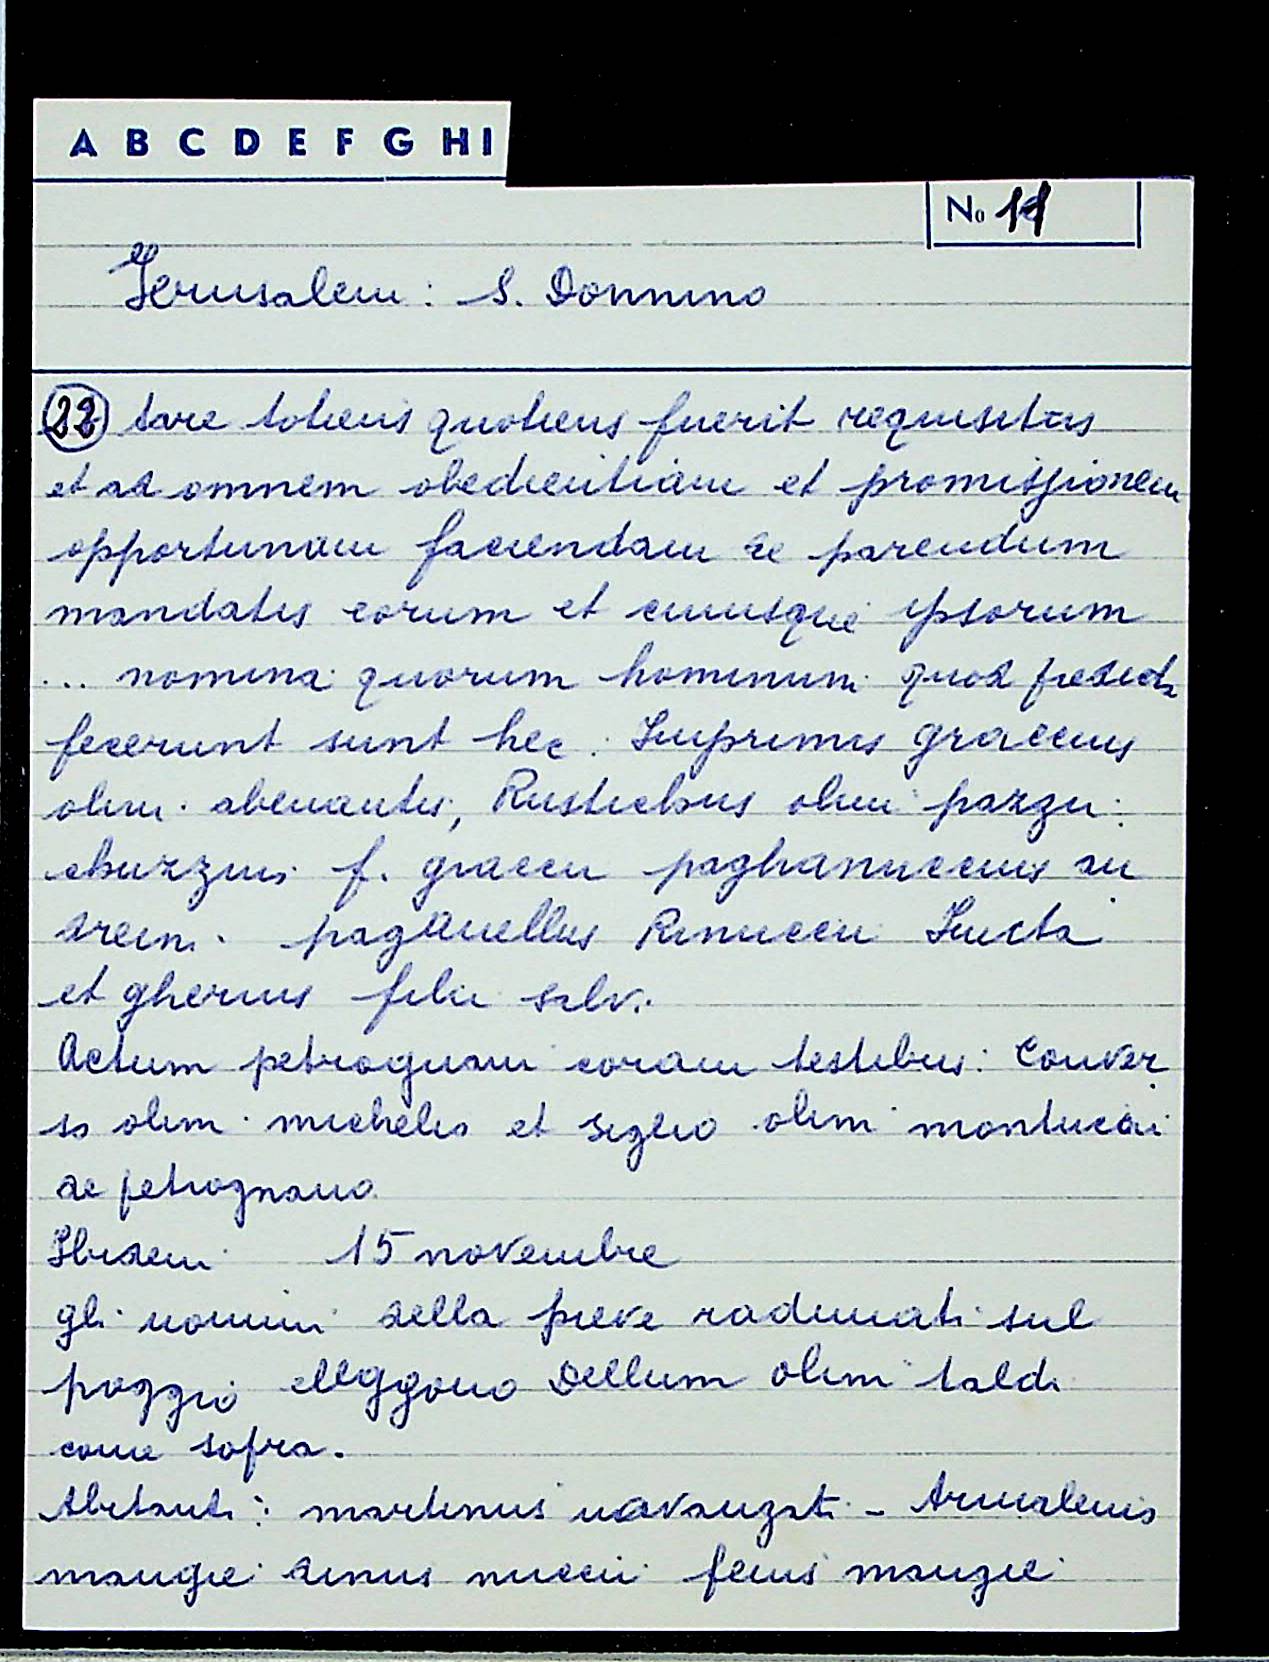 A B C D E F G H I
No 11
Jerusalem: S. Donnino
22 tare totiens quotiens fuerit requisitus
et ad omnem obedientiam et promissionem
opportunam faciendam de parendum
mandatis eorum et cuiusque ipsorum
... nomina quorum hominum quod predicta
fecerunt sunt hec: Imprimis graccius
olim abenantis, Rustichus olim pazzi:
chuzzus f. graccii paghannuccius
paganellus Rinuccii Iuncta
et gherius filii salv.
Actum petrognani coram testibus: Conver
so olim michelis et seglio olim montucci
de petrognano
Ibidem 15 novembre
gli uomini della pieve radunati sul
poggio eleggono Dellum olim taldi
come sopra.
Abitanti: martinus - Armalenis
mangie dinus nuccii feus mangie